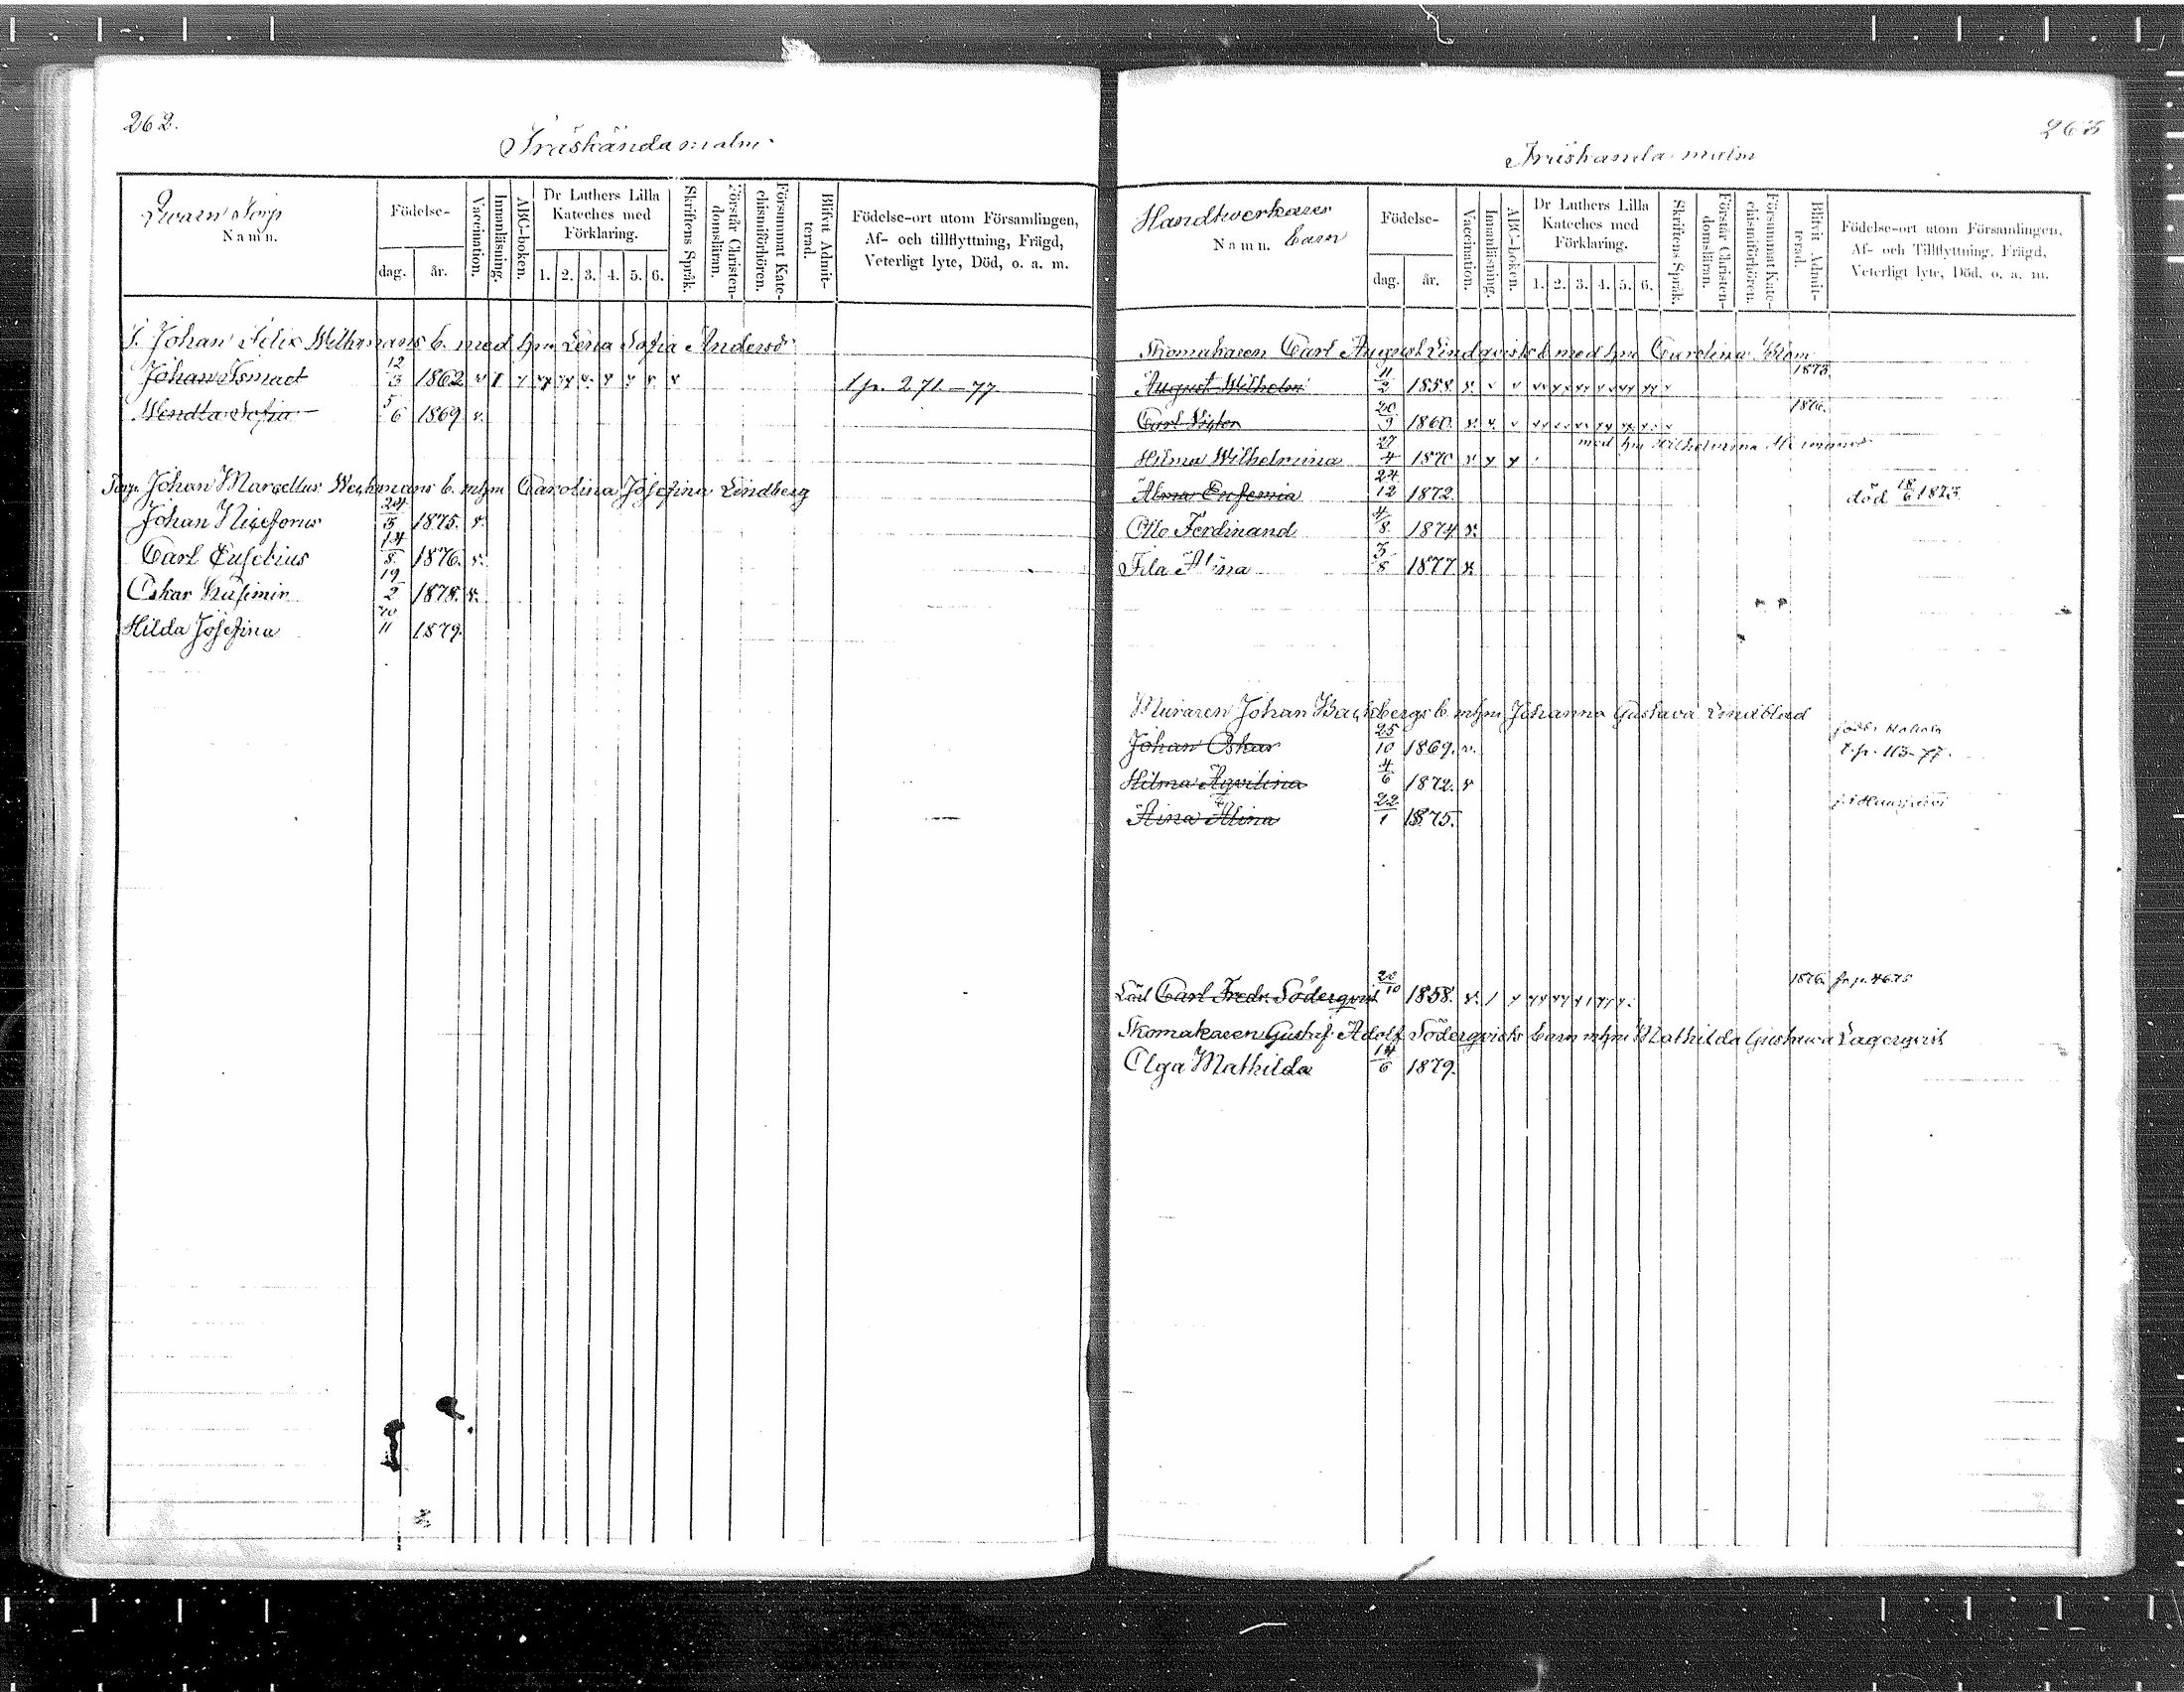 262.
Träskända malm
Namn.
Födelse-
dag. år.
Vaccination.
Innanläsning.
ABC-boken.
Dr Luthers Lilla Kateches med Förklaring.
1. 2. 3. 4. 5. 6.
Skriftens Språk.
Förstår Christendomsläran.
Försummat Katechismiförhören.
Blifvit Admitterad.
Födelse-ort utom Församlingen,
Af- och tillflyttning, Frägd,
Veterligt lyte, Död, o. a. m.
Johan Felix Wilkmans b. med hju Lena Sofia Andersdr
Johan Ismael 12/3 1862 t p. 271.–77
Wendla Sofia 5/6 1869
Torp. Johan Marcellus Weckmans b. mhju Carolina Josefina Lindberg
Johan Niceforus 24/3 1875.
Carl Eusebius 14/8 1876.
Oskar Kasimir 19/2 1878.
Hilda Josefina 11 1879.
263
Träskända malm
Handtverkares
Namn. barn
Födelse-
dag. år.
Vaccination.
Innanläsning.
ABC-boken.
Dr Luthers Lilla Kateches med Förklaring.
1. 2. 3. 4. 5. 6.
Skriftens Språk.
Förstår Christendomsläran.
Försummat Katechismiförhören.
Blifvit Admitterad.
Födelse-ort utom Församlingen,
Af- och Tillflyttning, Frägd,
Veterligt lyte, Död, o. a. m.
Skomakaren Carl August Lindqvists b. med hju Carolina Blom
August Wilhelm 11/2 1858. 1875.
Carl Viktor 20/9 1860. 1876.
med hju Wilhelmina
Hilma Wilhelmina 27/4 1870
Alma Eufemia 24/12 1872. död 18/6 1873
Otto Ferdinand 4/8 1874
Fila Alina 3/8 1877
Muraren Johan Backbergs b. mhju Johanna Gustava Lindblad
Johan Oskar 25/10 1869. t. p. 113–77.
Hilma Aqvilina 4/6 1872.
Aina Alina 22/1 1875.
Lärl Carl Fredr. Söderqvist 20/10 1858. 1876.
Skomakaren Gustaf Adolf Söderqvists barn mhju Mathilda Gustava Lagerqvist
Olga Mathilda 14/6 1879.